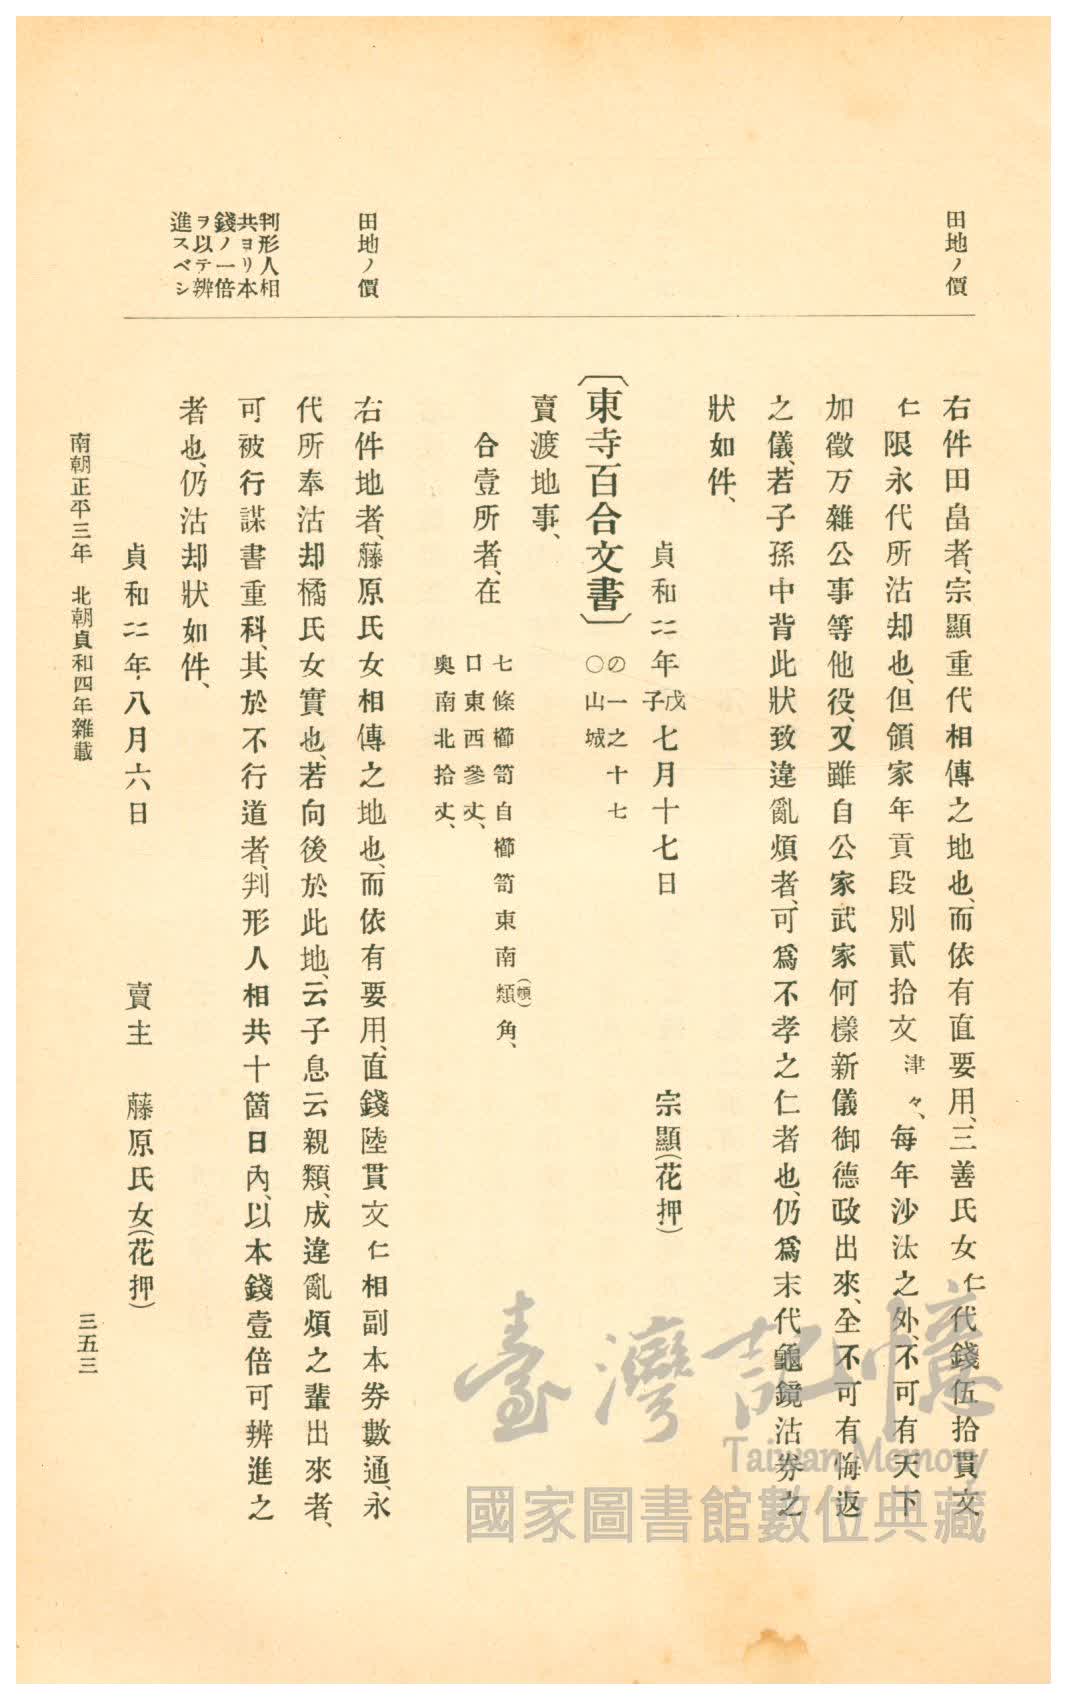 田地ノ價
右件田畠者、宗顯重代相傳之地也、而依有直要用、三善氏女仁代錢伍拾貫文
仁限永代所沽却也、但領家年貢段別貳拾文津々、每年沙汰之外、不可有天下
加徵万雜公事等他役、又雖自公家武家何樣新儀御德政出來、全不可有悔返
之儀、若子孫中背此狀致違亂煩者、可爲不孝之仁者也、仍爲末代龜鏡沽券之
狀如件、
貞和二二年戊子七月十七日 宗顯(花押)
〔東寺百合文書〕の一之十七
○山城
賣渡地事、
合壹所者、在
七條櫛笥自櫛笥東南類(頰)角、
口東西參丈、
奧南北拾丈、
田地ノ價
右件地者、藤原氏女相傳之地也、而依有要用、直錢陸貫文仁相副本券數通、永
代所奉沽却橘氏女實也、若向後於此地、云子息云親類、成違亂煩之輩出來者、
判形人相
共ヨリ本
錢ノ一倍
ヲ以テ辨
進スベシ
可被行謀書重科、其於不行道者、判形人相共十箇日內、以本錢壹倍可辨進之
者也、仍沽却狀如件、
貞和二二年八月六日 賣主 藤原氏女(花押)
南朝正平三年 北朝貞和四年雜載 三五三
臺灣記憶
Taiwan Memory
國家圖書館數位典藏